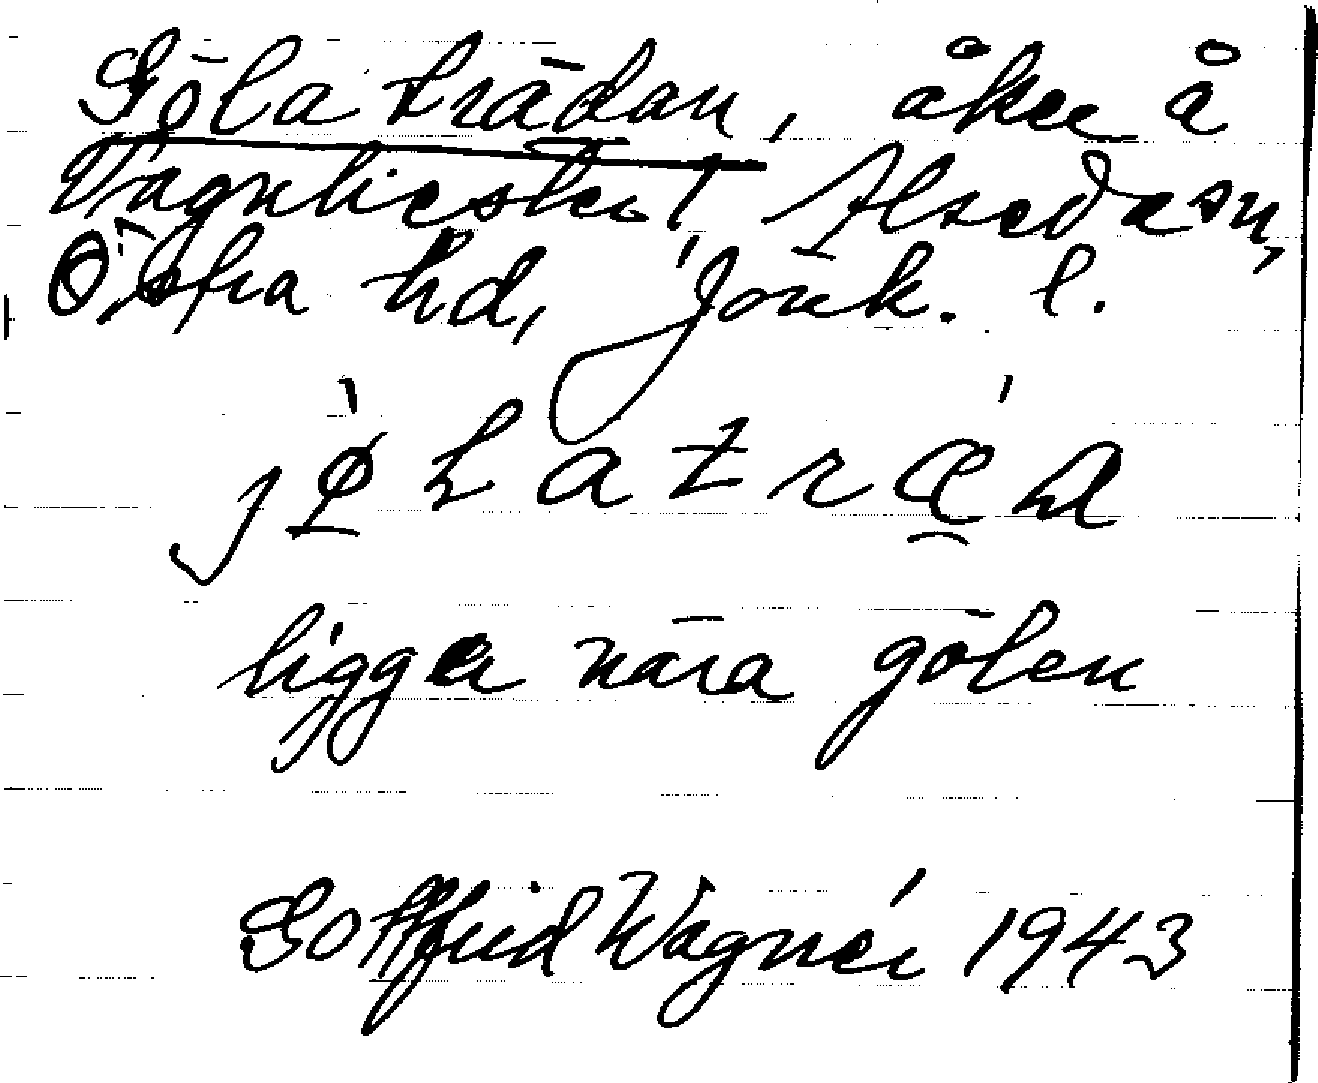 Göla trädan, åker å
Vagnhester, Alseda sn,
Östra hd, Jönk. l.
jø̀latrǽa
ligger nära gölen
Gottfrid Wagnér 1943